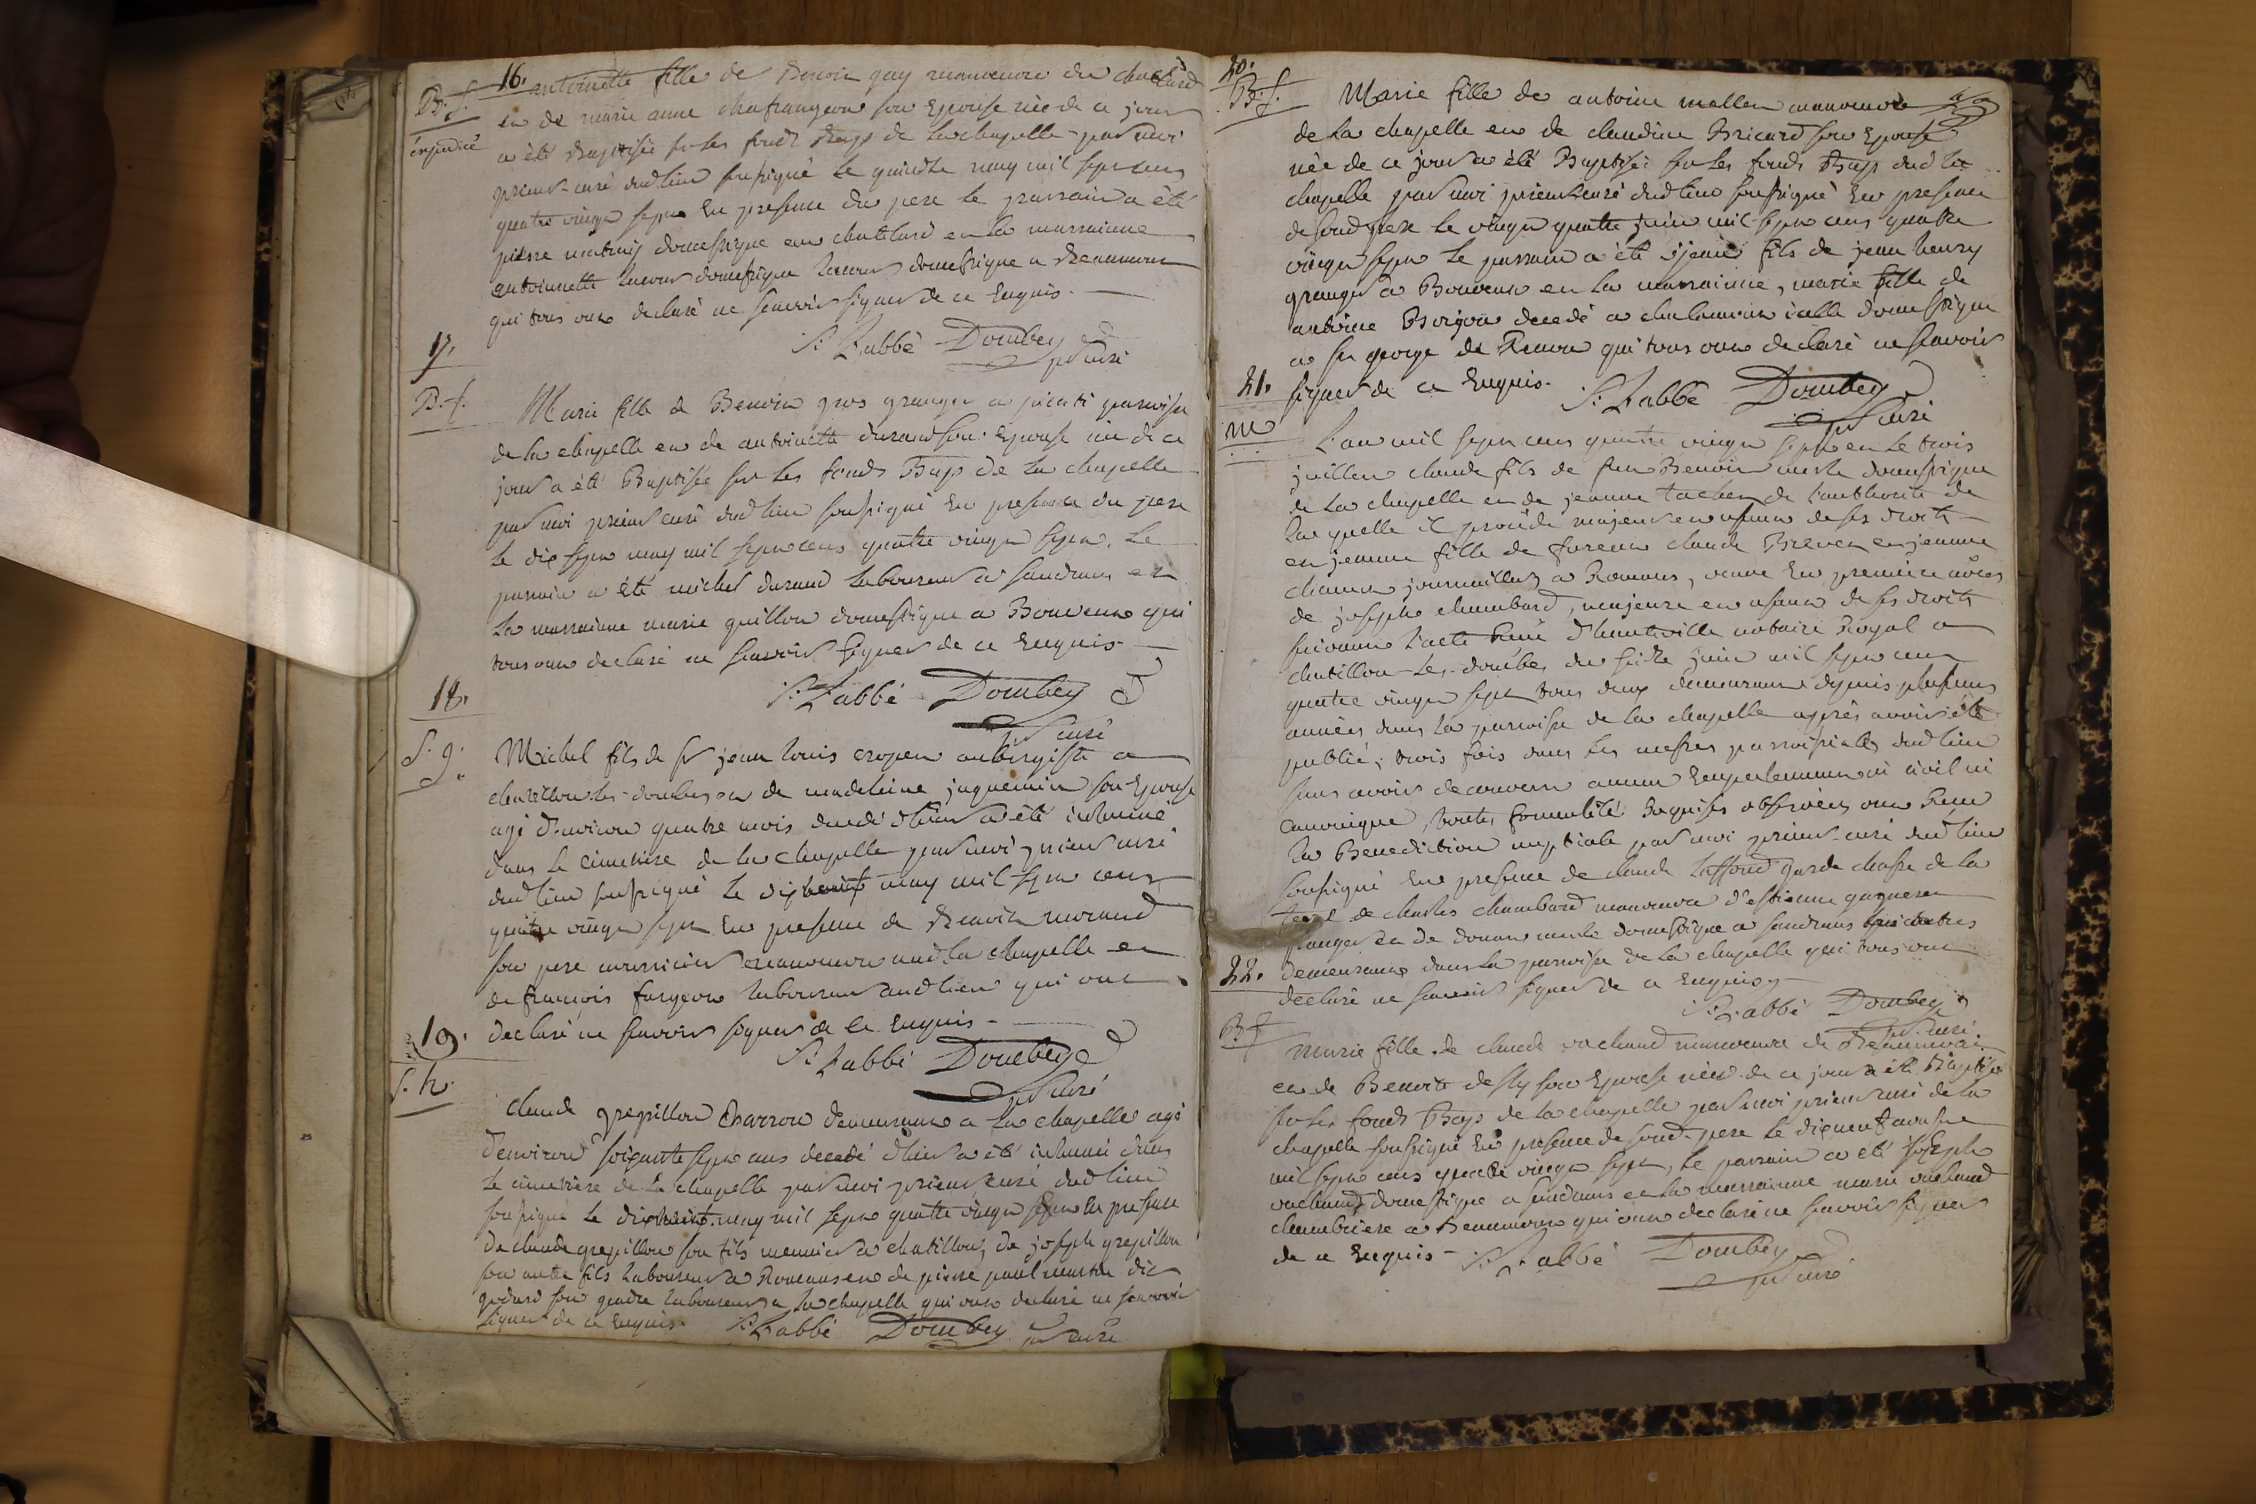 16.
B. f. antoinette fille de Benoit guy manoeuvre du chatelard
et de marie anne chafrangeon son Epouse née de ce jour
a été Baptisée sur les fonds Bap. de la chapelle par moi
prieur-curé dud lieu soussigné le quinze may mil sept cens
quatre vingt sept En presence du pere le parrain a été
pierre domestique au chatelard et la marrainne
antoinette domestique a Beaumont
qui tous ont declaré ne scavoir signer de ce Enquis.
S: Labbé Dombey pr curé
17.
B. f. Marie fille de Benoit gros granger a paroisse
de la chapelle et de antoinette durand son Epouse née de ce
jour a été Baptisée sur les fonds Bap de la chapelle
par moi prieur curé dud lieu soussigné En presence du pere
le dix sept may mil sept cens quatre vingt sept. Le
parain a été michel durand laboureur a sandrans et
la marrainne marie guillon domestique a Bouvent qui
tous ont declaré ne scavoir signer de ce Enquis
S: Labbé Dombey
pr curé
18.
S. g. Michel fils de sr jean louis cropet aubergiste a
chatillon les-dombes et de madeleine jaquemin son Epouse
agé d'environ quatre mois decedé d'hier a été inhumé
dans le cimetiere de la chapelle par moi prieur curé
dud lieu soussigné le dixhuit may mil sept cens
quatre vingt sept En presence de Benoit morand
son pere nourricier manoeuvre aud la chapelle et
de francois fargeon laboureur aud lieu qui ont
declaré ne scavoir signer de ce Enquis -
S: Labbé Dombey
pr curé
19.
S. h. Claude grepillon Charron demeurant a la chapelle agé
d'environ soixante sept ans decedé d'hier a été inhumé dans
le cimetiere de la chapelle par moi prieur curé dud lieu
soussigné le dixhuit may mil sept quatre vingt sept En presence
de claude grepillon son fils meunier a chatillon, de joseph grepillon
son autre fils laboureur a Romans et de pierre paul martin dit
godard son gendre laboureur a la chapelle qui ont declaré ne scavoir
signer de ce Enquis. S: Labbé Dombey pr curé
20.
B. f. Marie fille de antoine mallen manoeuvre
de la chapelle et de claudine Bricard son Epouse
née de ce jour a été Baptisée sur les fonds Bap dud la
chapelle par moi prieur curé dud lieu soussigné En presence
de sond pere le vingt quatre juin mil sept cens quatre
vingt sept le parrain a été jean fils de jean henry
granger a Bouvent et la marrainne, marie fille de
antoine decedé a icelle domestique
a st george de Renon qui tous ont declaré ne scavoir
signer de ce Enquis. S: Labbé Dombey
pr curé
21.
m L'an mil sept cens quatre vingt sept et le trois
juillet claude fils de feu Benoit merle domestique
de la chapelle et de jeanne tachon de l'authorité de
laquelle il procéde majeur et usant de ses droits
et jeanne fille de furent claude Brevet et jeanne
journalliers a Romans, veuve En premiere nôces
de joseph chambard, majeure et usant de ses droits
suivant l'acte Reçu d'hauteville notaire Royal a
chatillon-les-dombes du seize juin mil sept cens
quatre vingt sept tous deux demeurants depuis plusieurs
années dans la paroisse de la chapelle après avoir été
publiés trois fois dans les messes parroissiales dud lieu
sans avoir decouvert aucun Empechement ni civil ni
canonique, toutes formalités Requises observées ont Reçu
la Benediction nuptiale par moi prieur-curé dud lieu
soussigné En presence de claude Laffond garde chasse de la
de charles chambard manoeuvre d'estienne
granger et de donat merle domestique a sandrans
demeurants dans la paroisse de la chapelle qui tous ont
declaré ne scavoir signer de ce Enquis
S: Labbé Dombey
pr curé
22.
B f Marie fille de claude vachaud manoeuvre de Beaumont
et de Benoite son Epouse née de ce jour a été Baptisée
sur les fonds Bap de la chapelle par moi prieur curé de la
chapelle soussigné En presence de sond-pere le dixneuf aoust
mil sept cens quatre vingt sept, le parrain a été joseph
vachaud domestique a sandrans et la marrainne marie vachaud
chambriere a Beaumont qui ont declaré ne scavoir signer
de ce Enquis - S: Labbé Dombey
pr curé